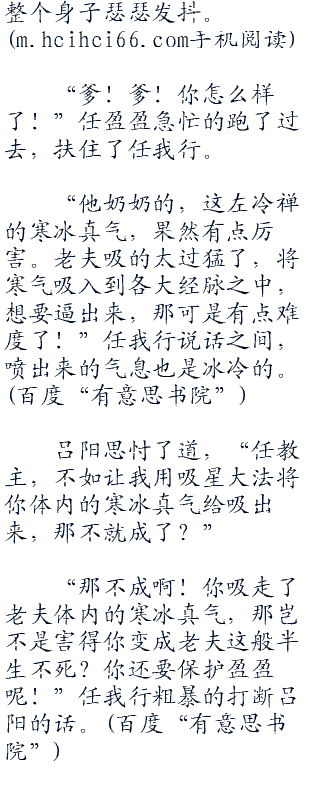 整个身子瑟瑟发抖。
(m.hcihci66.com手机阅读)
“爹！爹！你怎么样
了！”任盈盈急忙的跑了过
去，扶住了任我行。
“他奶奶的，这左冷禅
的寒冰真气，果然有点厉
害。老夫吸的太过猛了，将
寒气吸入到各大经脉之中，
想要逼出来，那可是有点难
度了！”任我行说话之间，
喷出来的气息也是冰冷的。
(百度“有意思书院”)
吕阳思忖了道，“任教
主，不如让我用吸星大法将
你体内的寒冰真气给吸出
来，那不就成了？”
“那不成啊！你吸走了
老夫体内的寒冰真气，那岂
不是害得你变成老夫这般半
生不死？你还要保护盈盈
呢！”任我行粗暴的打断吕
阳的话。(百度“有意思书
院”)